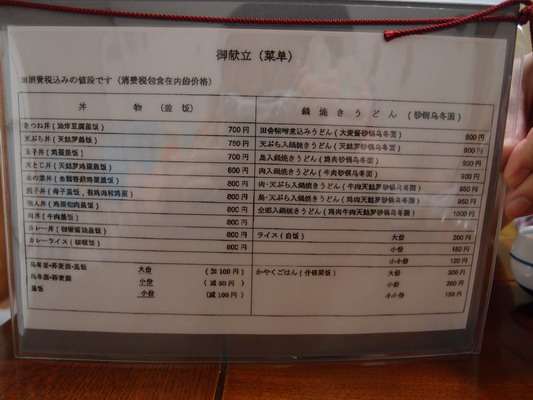 御献立（菜单）
※消費税込みの値段です（消费税包含在内的价格）
丼 物 （盖饭）
きつね丼（油炸豆腐盖饭） 700円
天ぷら丼（天麸罗盖饭） 750円
玉子丼（鸡蛋盖饭） 700円
天とじ丼（天麸罗鸡蛋盖饭） 800円
木の葉丼 800円
親子丼（母子盖饭，有鸡肉和鸡蛋） 800円
他人丼（鸡蛋包肉盖饭） 800円
肉丼（牛肉盖饭） 800円
カレー丼（咖喱酱油盖饭） 800円
カレーライス（咖喱饭） 800円
乌冬面・荞麦面・盖饭 大份 （加100円）
乌冬面・荞麦面 小份 （减50円）
盖饭 小份 （减100円）
鍋焼きうどん（砂锅乌冬面）
田舎味噌煮込みうどん（大黄酱砂锅乌冬面） 900円
天ぷら入鍋焼きうどん（天麸罗砂锅乌冬面） 900円
鳥入鍋焼きうどん（鸡肉砂锅乌冬面） 900円
肉入鍋焼きうどん（牛肉砂锅乌冬面） 900円
肉・天ぷら入鍋焼きうどん（牛肉天麸罗砂锅乌冬面） 950円
鳥・天ぷら入鍋焼きうどん（鸡肉天麸罗砂锅乌冬面） 950円
全部入鍋焼きうどん（鸡肉牛肉天麸罗砂锅乌冬面） 1000円
ライス（白饭） 大份 200円
小份 150円
小小份 120円
かやくごはん（什锦菜饭） 大份 300円
小份 200円
小小份 150円